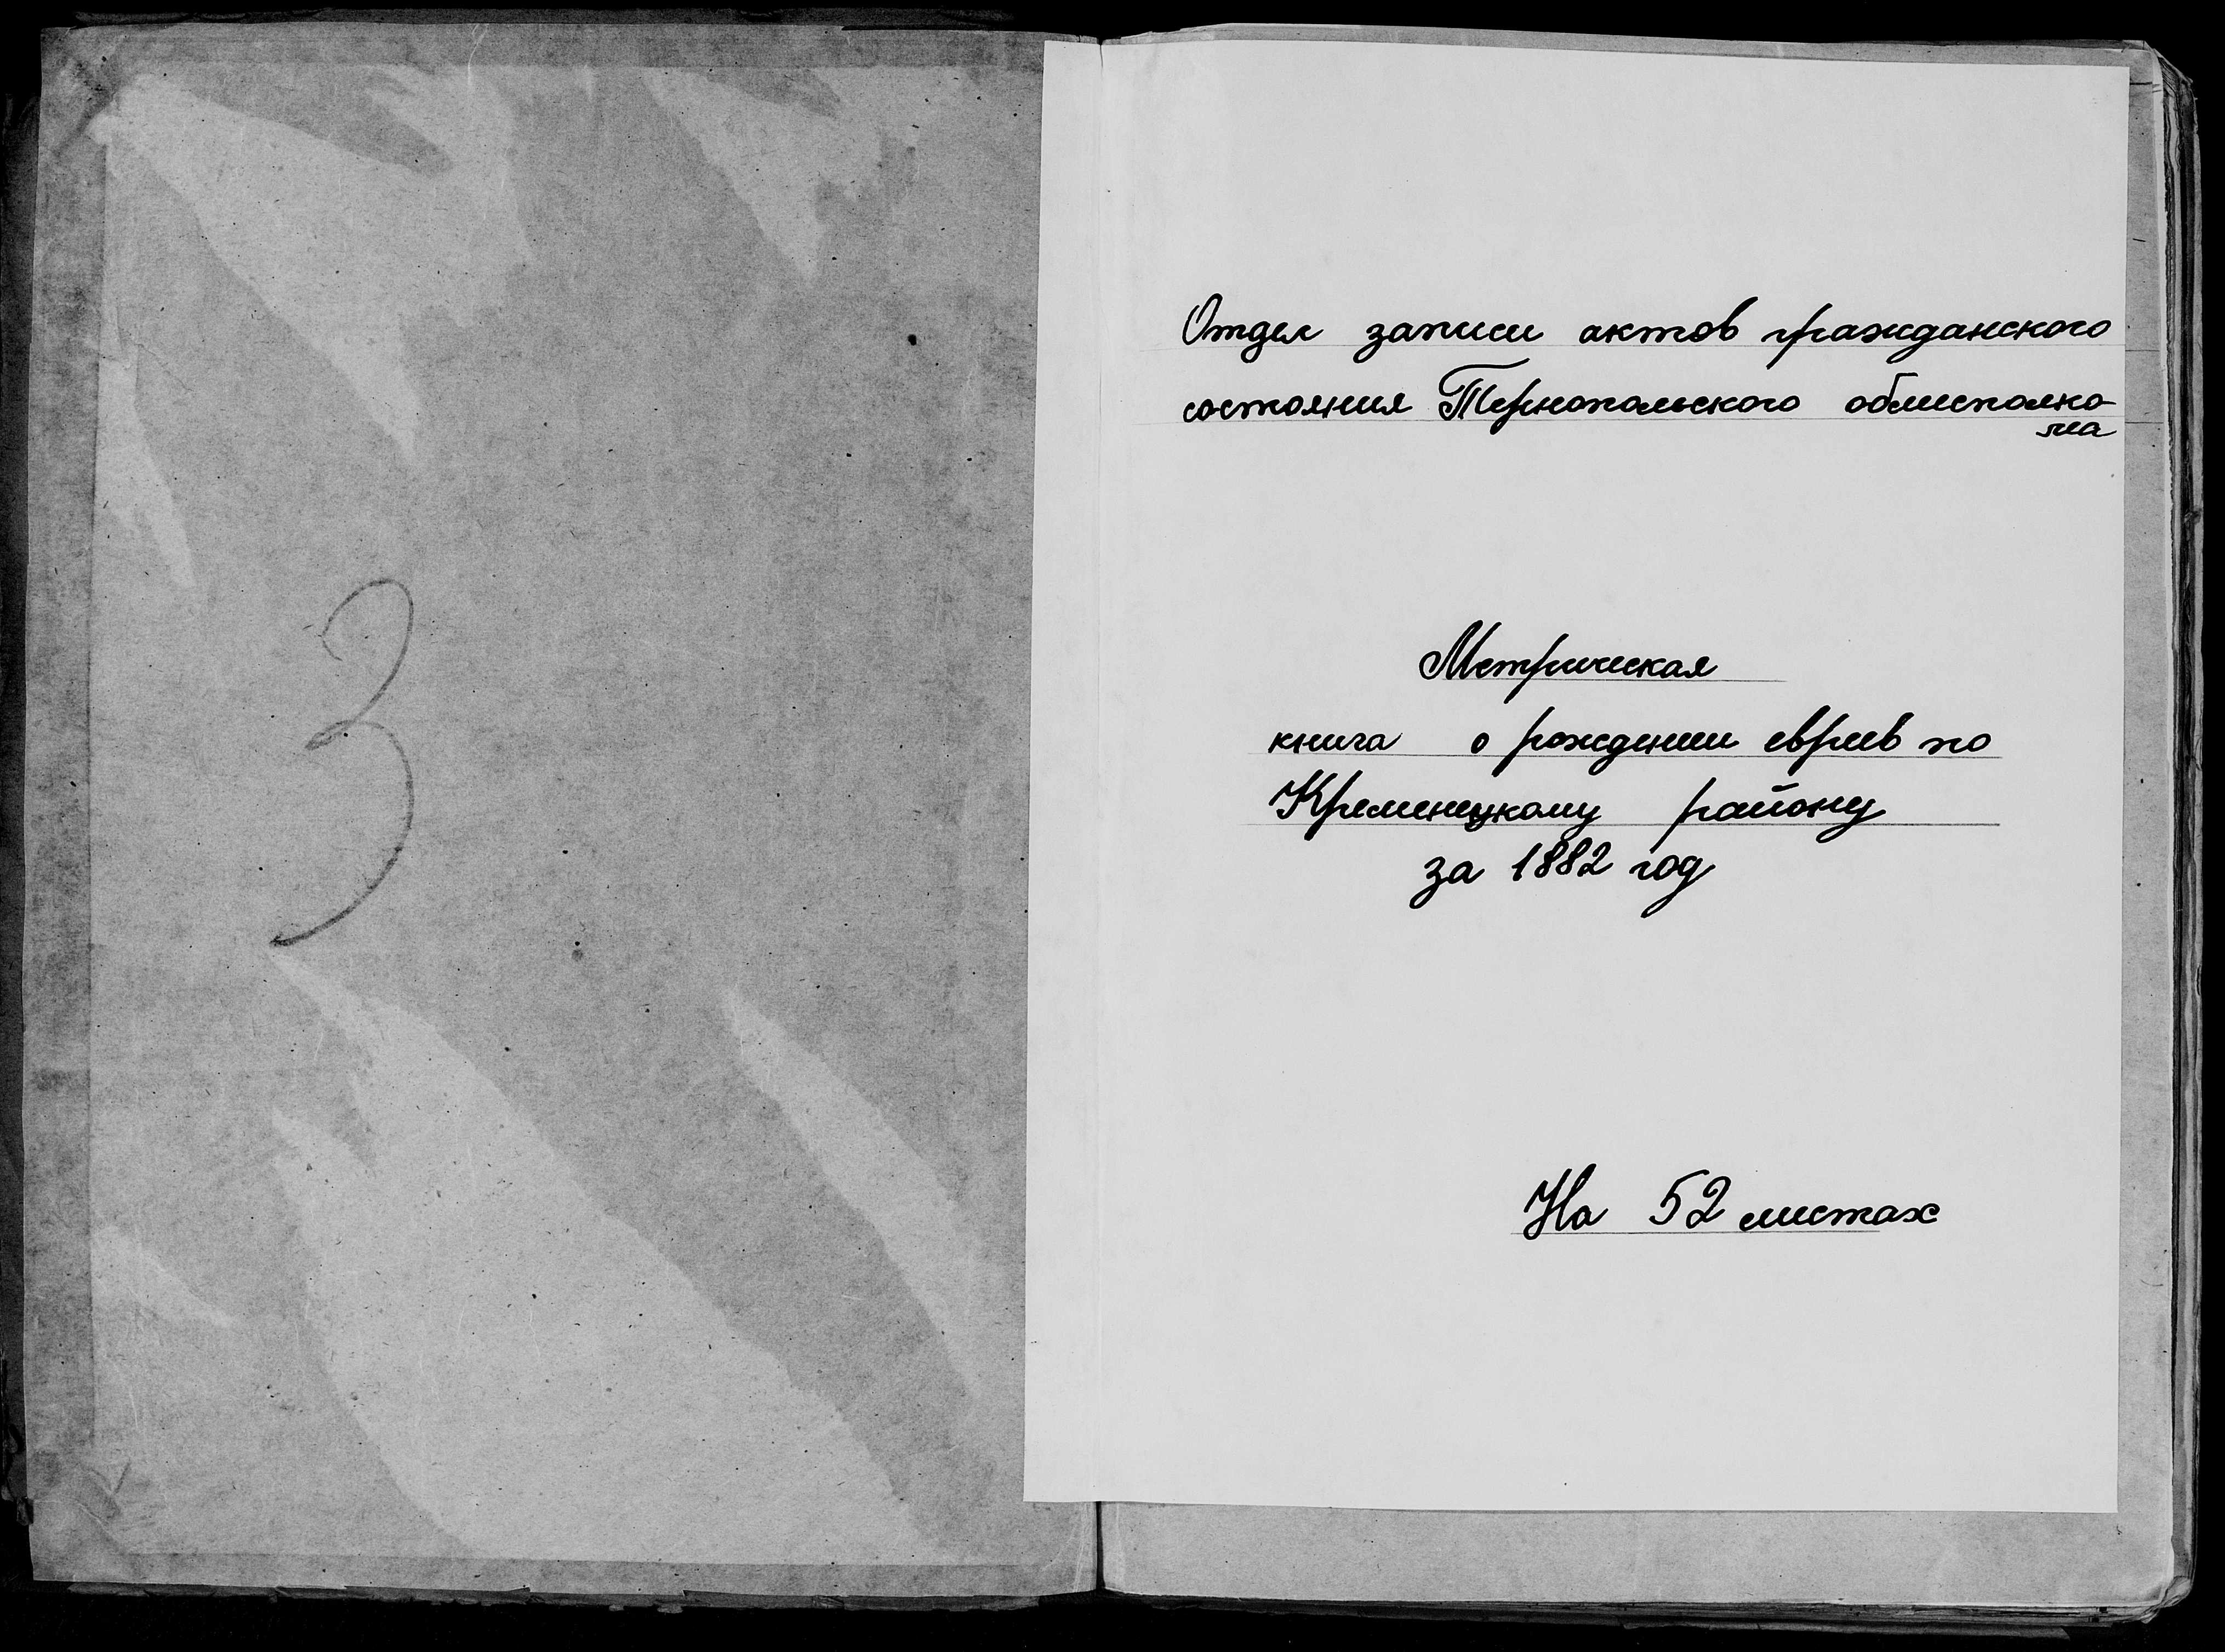 3
Отдел записи актов гражданского
состояния Тернопольского облисполко-
ма
Метрическая
книга о рождении евреев по
Кременецкому району
за 1882 год
На 52 листах